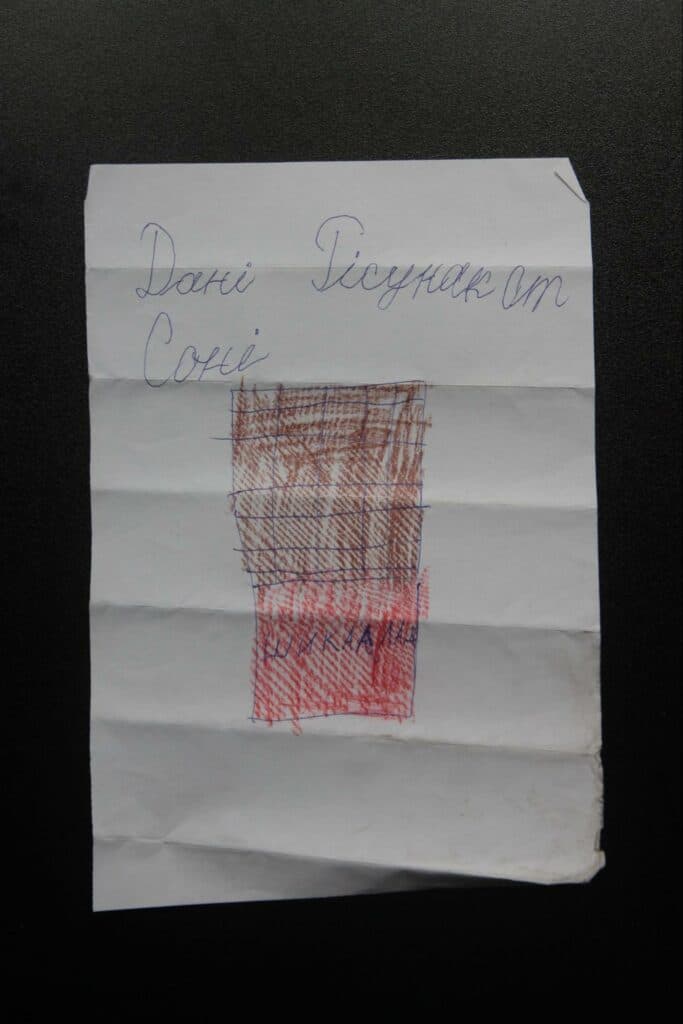 Дані Рісунак от
Соні